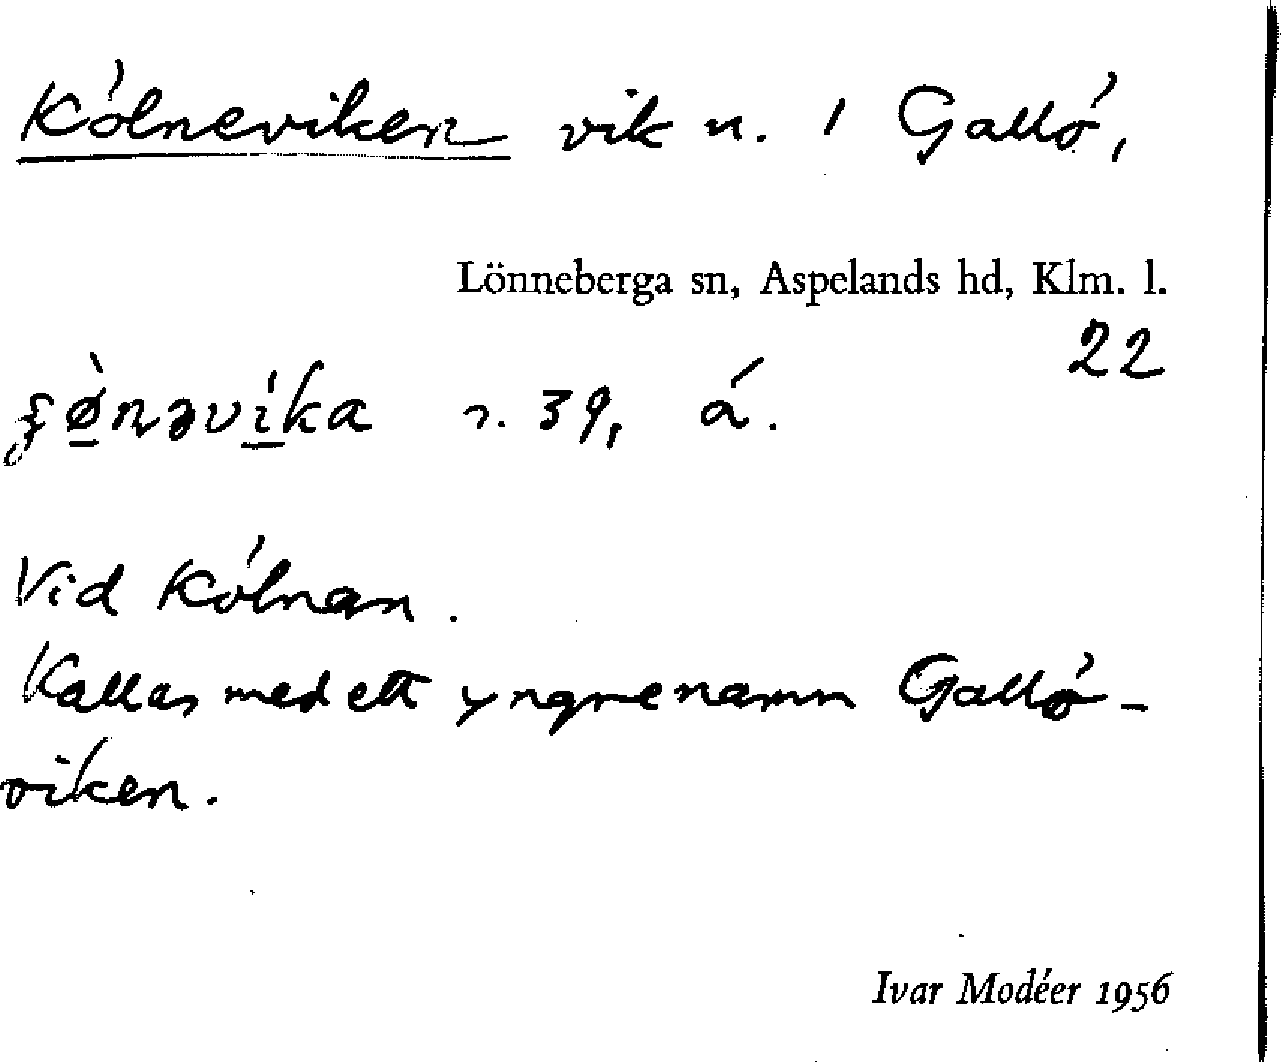 Kölneviken vik n. i Gallö,
Lönneberga sn, Aspelands hd, Klm. l.
22
r. 39, á.
Vid Kölnan.
Kallas med ett yngre namn Gallö-
viken.
Ivar Modéer 1956